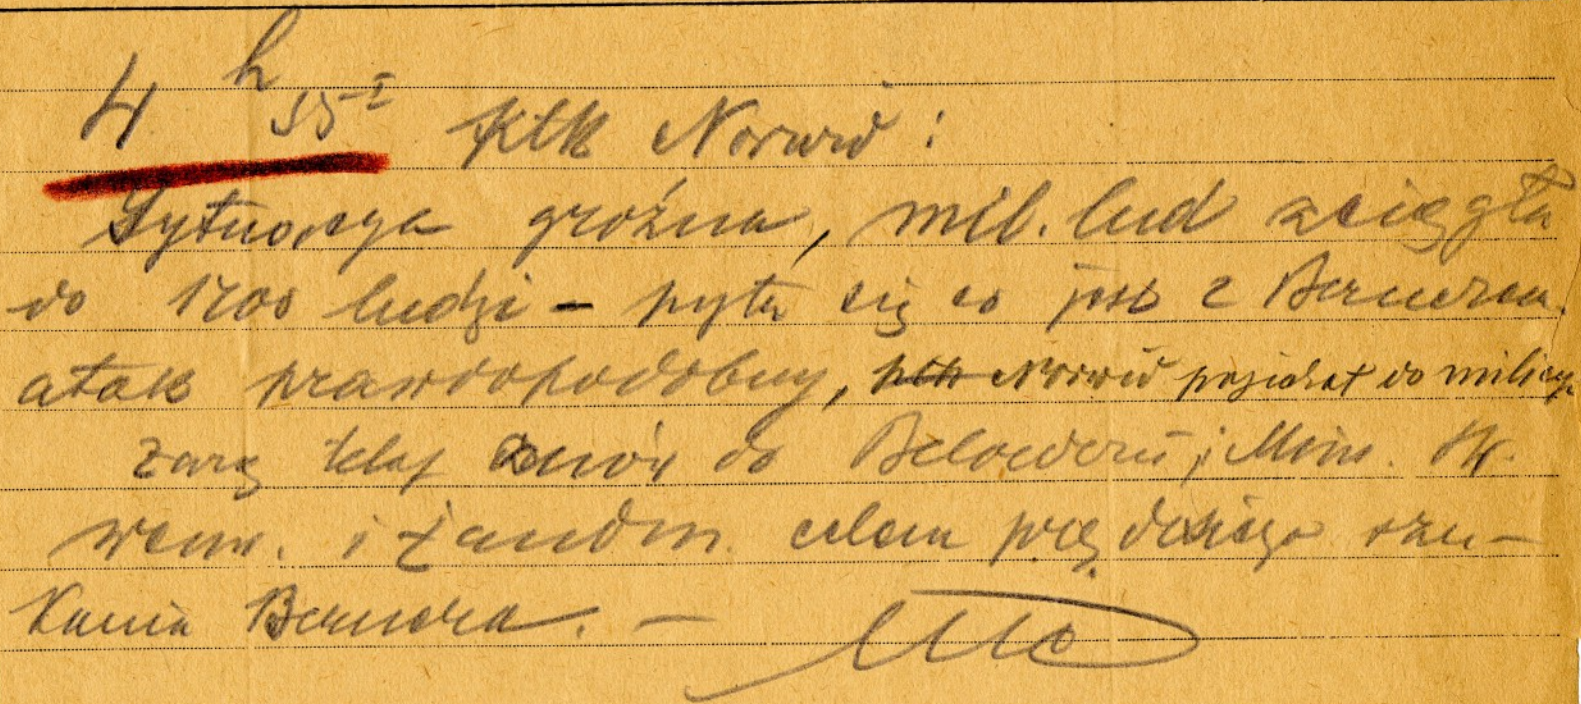 4 h 55 płk Norwid:
Sytuacya groźna, mil. lud ściągła
do 1700 ludzi – pyta się co jest z Bernerem.
atak prawdopodobny, płk Norwid pojechał do milicyi
zaraz telef do Belwederu, Min. Spr.
wewn. i żandm. celem prędkiego szu-
kania Bernera. —